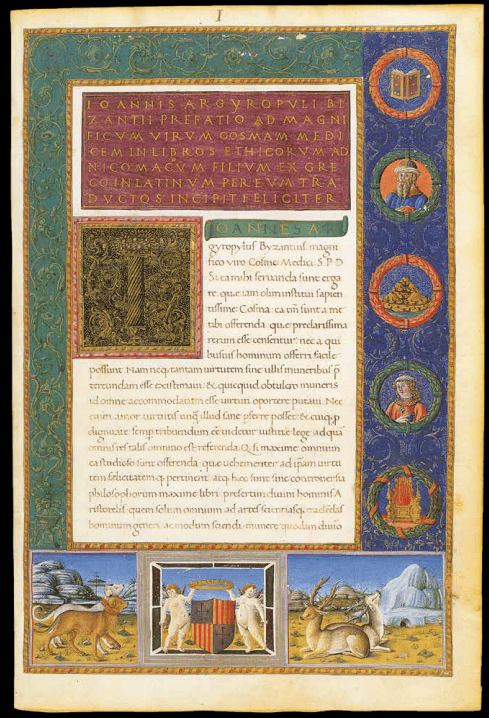 I
IOANNIS ARGYROPVLI BI
ZANTII PREFATIO AD MAGNI
FICVM VIRVM COSMAM MEDI
CEM IN LIBROS ETHICORVM AD
NICOMACVM FILIVM EX GRE
CO IN LATINVM PER EVM TRA
DVCTOS INCIPIT FELICITER
IOANNES AR
gyropylus Byzantius magni
fico viro Cosme Medici S P D
Si ea mihi servanda sunt erga
te. que iam olim institui sapien
tissime Cosma: ea
tibi offerenda que preclarissima
rerum esse censentur: nec a qui
busvis hominum offerri facile
possunt. Nam neque tantam virtutem sine ullis muneribus
esse existimavi: & quicquid obtulero muneris
id omne accommodatum esse virtuti oportere putavi. Nec
enim amor virtutis illud sane posset: &
dignitate semper tribuendum videtur iustitie lege ad quam
omnis res talis omnino est referenda. Q si maxime omnium
ea studioso sunt offerenda que vehementer ad ipam virtu
tem felicitatem pertinent. atque hec sunt sine controversia
philosophorum maxime libri presertim divini hominis A
ristotelis. quem solum omnium ad artes scientiasque
hominum generi ac modum sciendi munere quodam divino